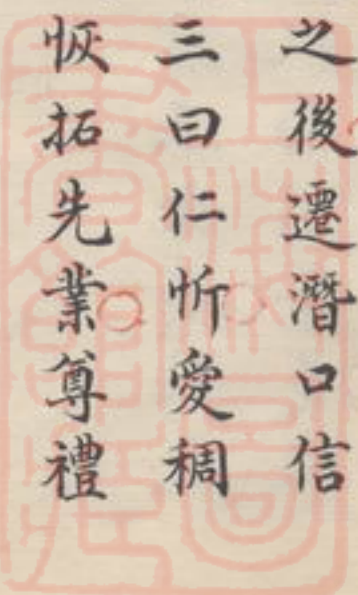 之後遷潛口信
三曰仁忻愛稠
恢拓先業尊禮